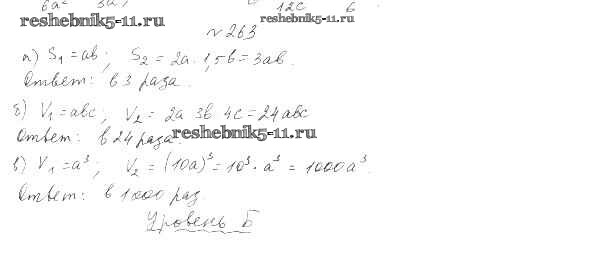 6a 3a 12c 6
reshebnik5-11.ru reshebnik5-11.ru
№263
а) S₁ = ab; S₂ = 2a · 1,5b = 3ab.
Ответ: в 3 раза.
б) V₁ = abc; V₂ = 2a 3b 4c = 24abc
Ответ: в 24 раза. reshebnik5-11.ru
в) V₁ = a³; V₂ = (10a)³ = 10³ · a³ = 1000a³.
Ответ: в 1000 раз
Уровень Б